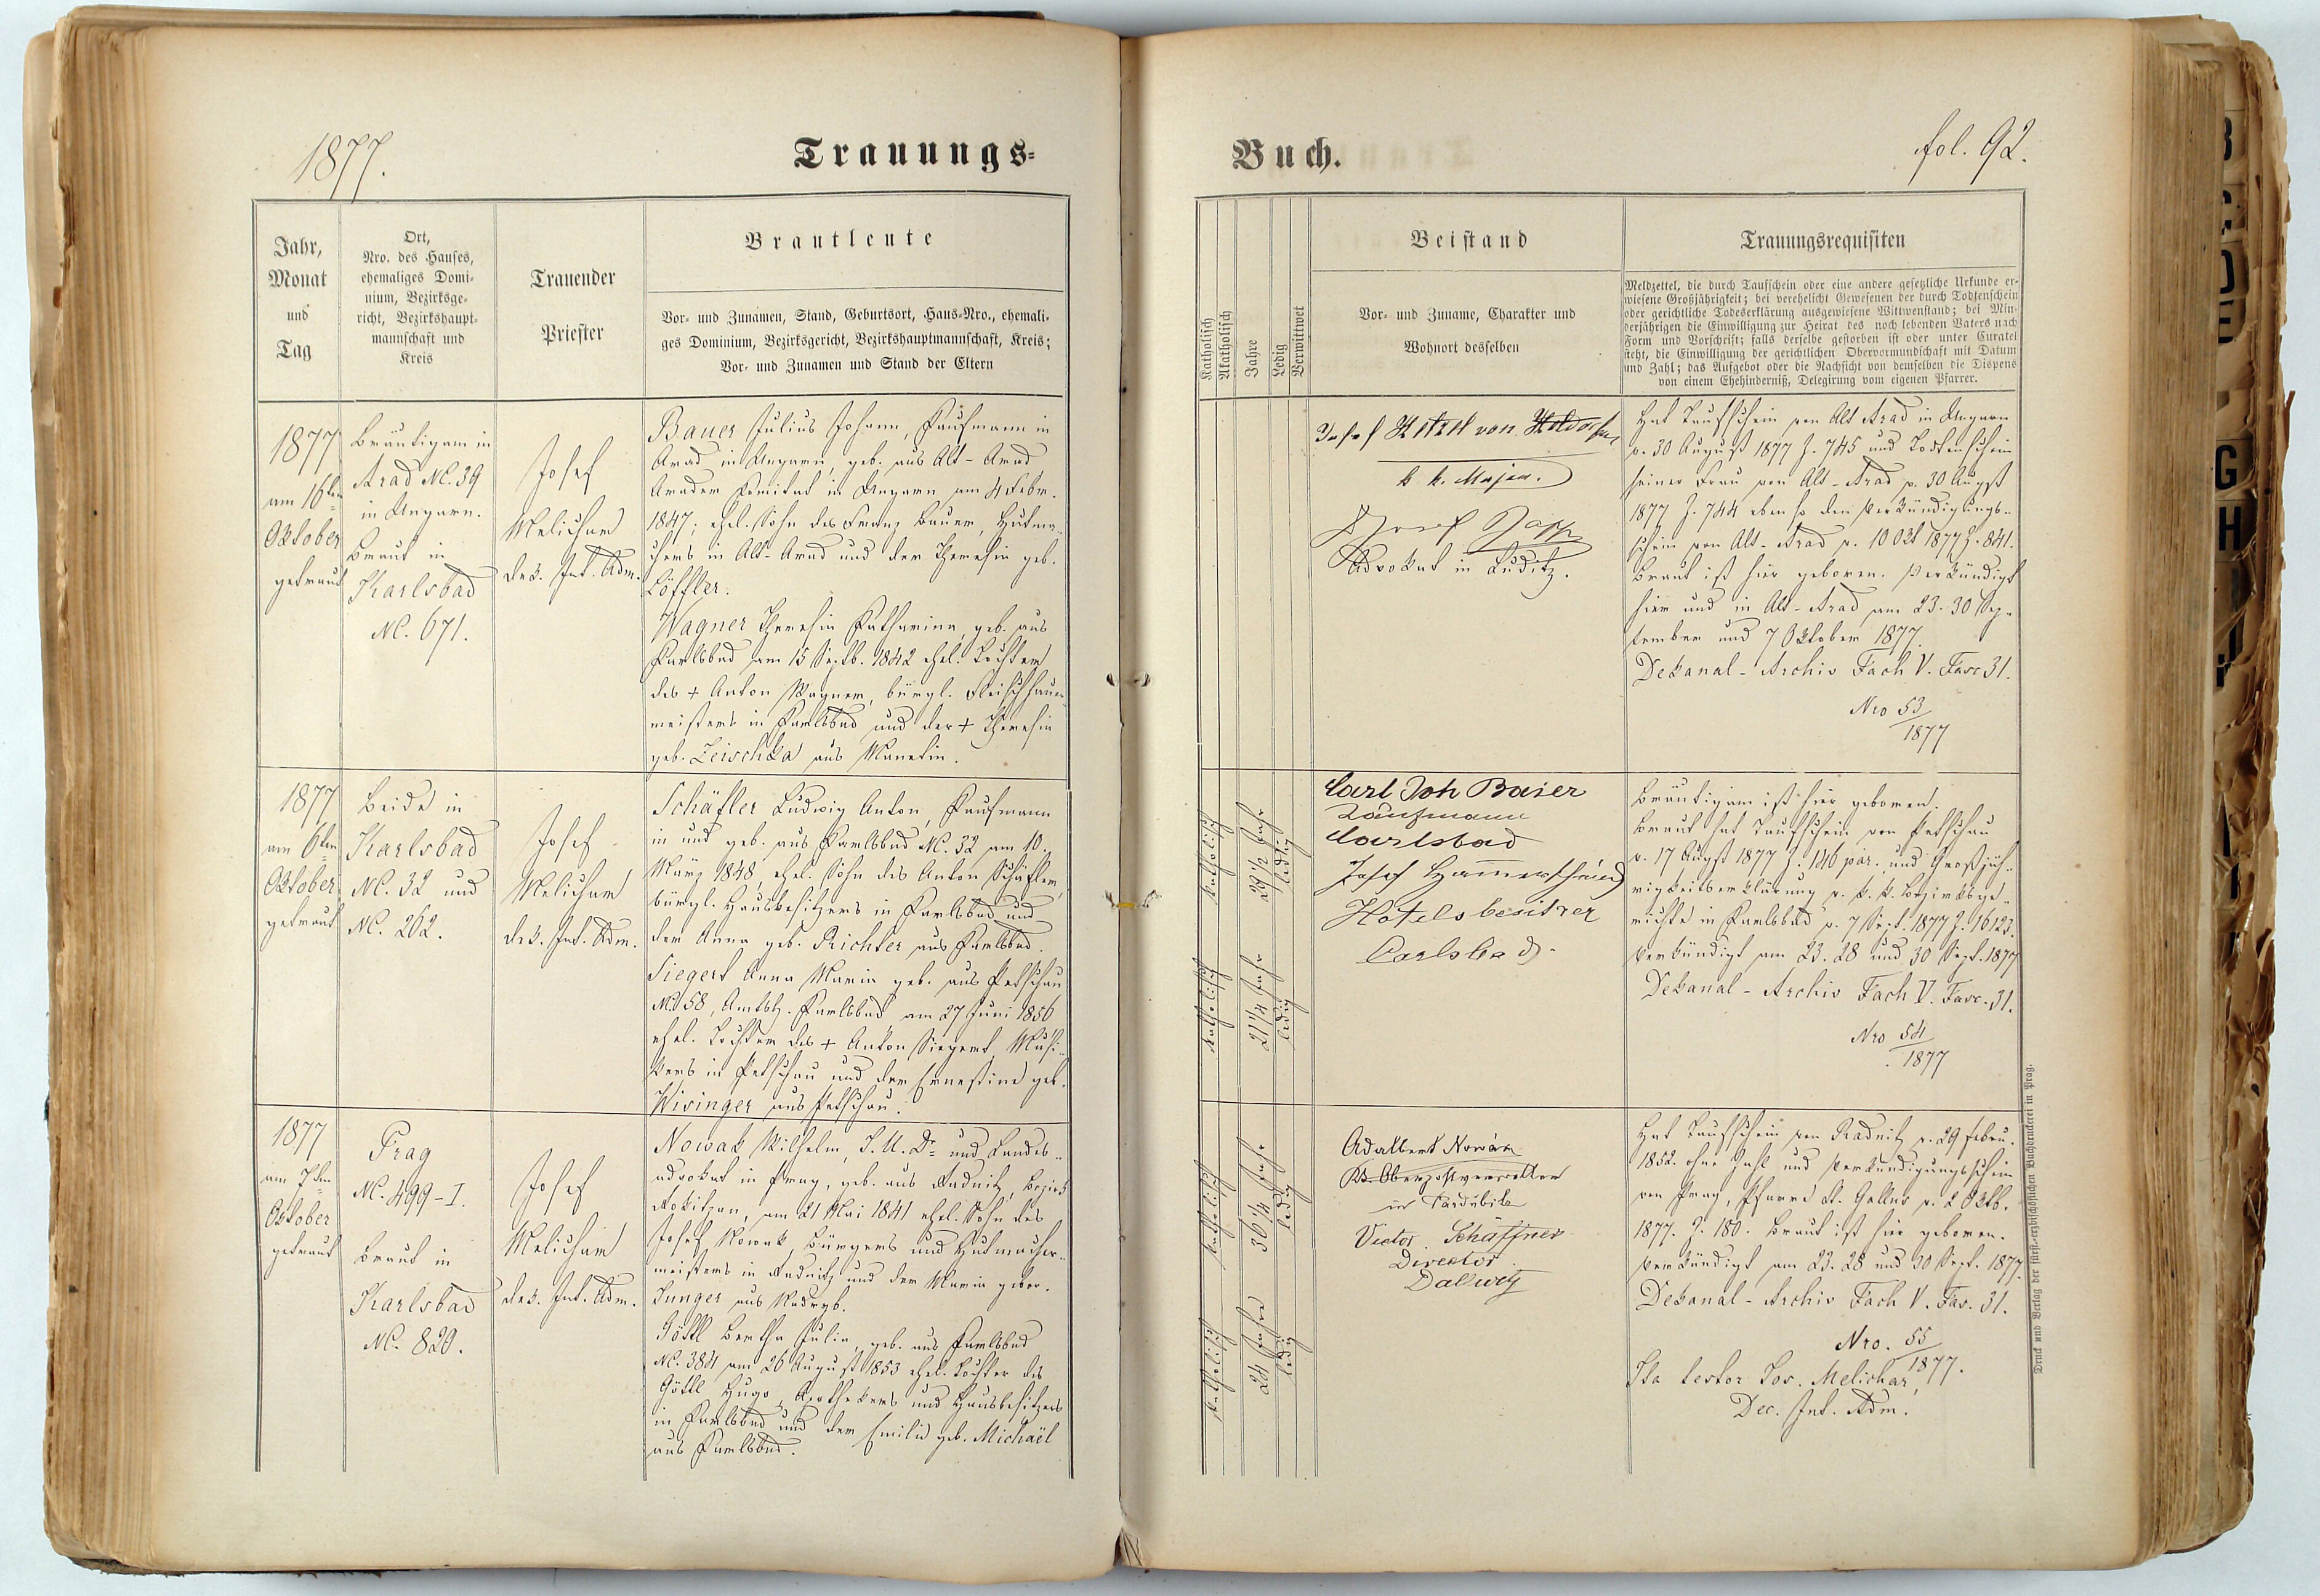 1877.
Trauungs-
Jahr,
Monat
und
Tag
Ort,
Nro. des Hauses,
ehemaliges Domi-
nium, Bezirksge-
richt, Bezirkshaupt-
mannschaft und
Kreis
Trauender
Priester
Brautleute
Vor- und Zunamen, Stand, Geburtsort, Haus-Nro., ehemali-
ges Dominium, Bezirksgericht, Bezirkshauptmannschaft, Kreis;
Vor- und Zunamen und Stand der Eltern
1877
am 16ten
Oktober
getraut
Bräutigam in
Arad NC. 39
in Ungarn.
Braut in
Karlsbad
NC. 671.
Josef
Melichar
dek. Int. Adm.
Bauer Julius Johann, Kaufmann in
Arad in Ungarn, geb. aus Alt-Arad
Arader Komitat in Ungarn am 4 Febr.
1847; ehel. Sohn des Franz Bauer, Hutma-
chers in Alt-Arad und der Theresia geb.
Löffler.
Wagner Theresia Katharina, geb. aus
Karlsbad am 15 Septb. 1842 ehel. Tochter
des + Anton Wagner, bürgl. Fleischhauer-
meisters in Karlsbad und der + Theresia
geb. Zeischka aus Manetin.
1877
am 6ten
Oktober
getraut
Beide in
Karlsbad
NC. 32 und
NC. 262.
Josef
Melichar
dek. Int. Adm.
Schäfler Ludwig Anton, Kaufmann
in und geb. aus Karlsbad NC. 32 am 10.
März 1848, ehel. Sohn des Anton Schäfler,
bürgl. Hausbesitzers in Karlsbad und
der Anna geb. Richter aus Karlsbad.
Siegert Anna Maria geb. aus Petschau
NC. 58, Amtsbz. Karlsbad am 27 Juni 1856
ehel. Tochter des + Anton Siegert, Musi-
kers in Petschau und der Ernestine geb.
Wisinger aus Petschau.
1877
am 7ten
Oktober
getraut
Prag
NC. 499-I.
Braut in
Karlsbad
NC. 820.
Josef
Melichar
dek. Int. Adm.
Nowak Wilhelm, J. U. Dr. und Landes-
advokat in Prag, geb. aus Radnitz, Bezirk
Rokitzan, am 21 Mai 1841 ehel. Sohn des
Josef Nowak, Bürgers und Hutmacher-
meisters in Radnitz und der Maria gebor.
Junger aus
Göttl Bertha Julia, geb. aus Karlsbad
NC. 384 am 26 August 1853 ehel. Tochter des
Göttl Hugo, Apothekers und Hausbesitzers
in Karlsbad und der Emilie geb. Michaël
aus Karlsbad.
Buch.
fol. 92.
Katholisch
Akatholisch
Jahre
Ledig
Verwittwet
Beistand
Vor- und Zuname, Charakter und
Wohnort desselben
Trauungsrequisiten
Meldzettel, die durch Taufschein oder eine andere gesetzliche Urkunde er-
wiesene Großjährigkeit; bei verehelicht Gewesenen der durch Todtenschein
oder gerichtliche Todeserklärung ausgewiesene Wittwenstand; bei Min-
derjährigen die Einwilligung zur Heirat des noch lebenden Vaters nach
Form und Vorschrift; falls derselbe gestorben ist oder unter Curatel
steht, die Einwilligung der gerichtlichen Obervormundschaft mit Datum
und Zahl; das Aufgebot oder die Nachsicht von demselben die Dispens
von einem Ehehinderniß, Delegirung vom eigenen Pfarrer.
Josef von
k. k. Major.
Josef
Advokat in Luditz.
Hat Taufschein von Alt Arad in Ungarn
v. 30 August 1877 Z. 745 und Todtenschein
seiner Frau von Alt-Arad v. 30 August
1877 Z. 744 ebenso den Verkündigungs-
schein von Alt-Arad v. 10 Okt 1877 Z. 841.
Braut ist hier geboren. Verkündigt
hier und in Alt-Arad am 23. 30 Sep-
tember und 7 Oktober 1877.
Dekanal-Archiv Fach V. Fasc 31.
Nro 53
1877
katholisch
29 1/2 Jahr
ledig
katholisch
21 1/4 Jahr
ledig
Carl Joh Baier
Kaufmann
Carlsbad
Josef Hammerschmid
Hotelsbesitzer
Carlsbad.
Bräutigam ist hier geboren.
Braut hat Taufschein von Petschau
v. 17 August 1877 Z. 146 par. und Großjäh-
rigkeitserklärung v. k. k. Bezirksge-
richte in Karlsbad v. 7 Sept. 1877 Z. 16123.
Verkündigt am 23. 28 und 30 Sept. 1877
Dekanal-Archiv Fach V. Fasc. 31.
Nro 54
1877
katholisch
36 1/4 Jahr
ledig
katholisch
24 Jahre
ledig
Adalbert Nowák
K. Oberpostverwalter
in Pardubitz
Victor Schäffner
Director
Dallwitz
Hat Taufschein von Radnitz v. 29 Febru.
1852. ohne Zahl und Verkündigungsschein
von Prag, Pfarre St. Gallus v. 2 Oktb.
1877. Z. 180. Braut ist hier geboren.
Verkündigt am 23. 28 und 30 Sept. 1877.
Dekanal-Archiv Fach V. Fas. 31.
Nro. 55
1877.
Ita testor Jos. Melichar,
Dec. Int. Adm.
Druck und Verlag der fürst.-erzbischöflichen Buchdruckerei in Prag.